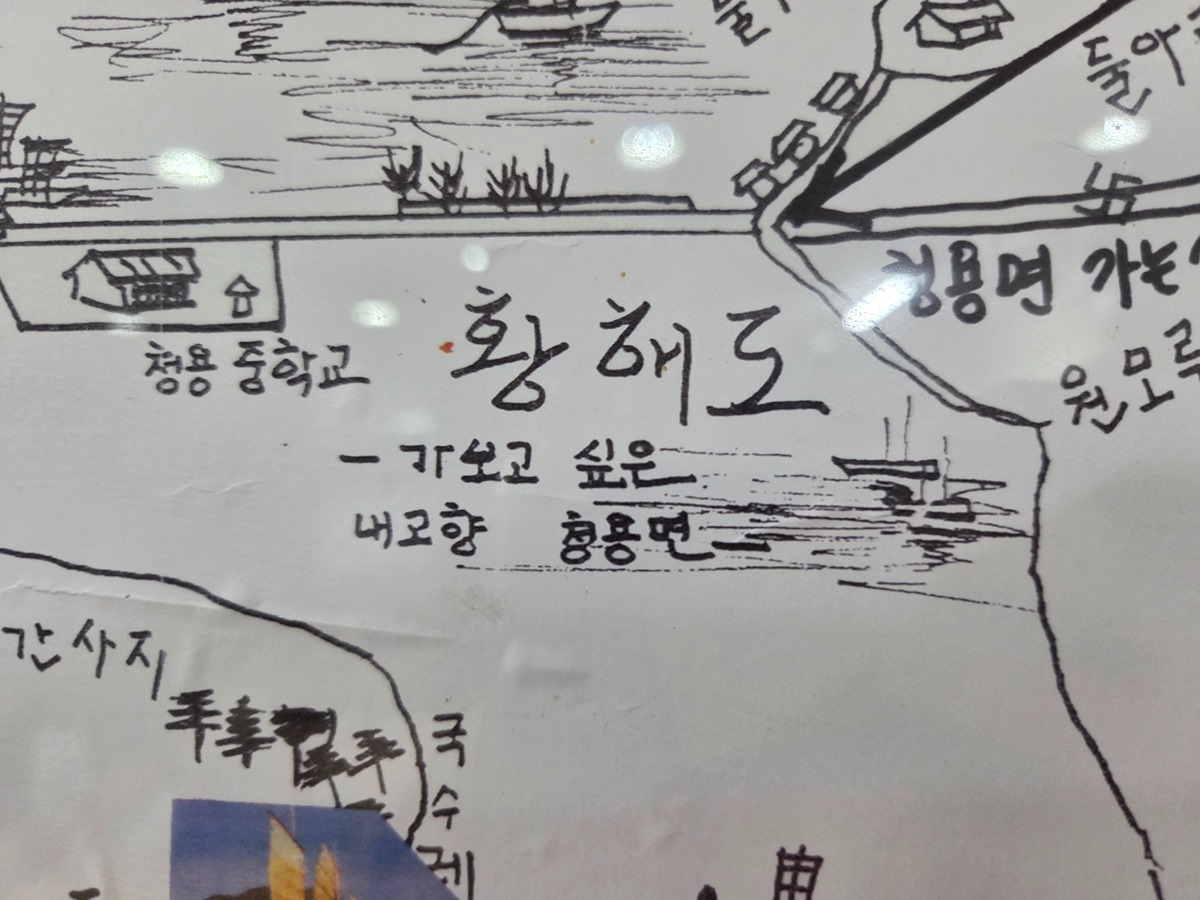 돌아
청용면 가는
청용 중학교
황해도
원모루
- 가보고 싶은
내고향 청용면 -
간사지
국수